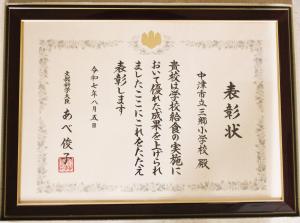 表彰状
中津市立三郷小学校 殿
貴校は学校給食の実施に
おいて優れた成果を上げられ
ましたここにこれをたたえ
表彰します
令和七年八月五日
文部科学大臣 あべ俊子